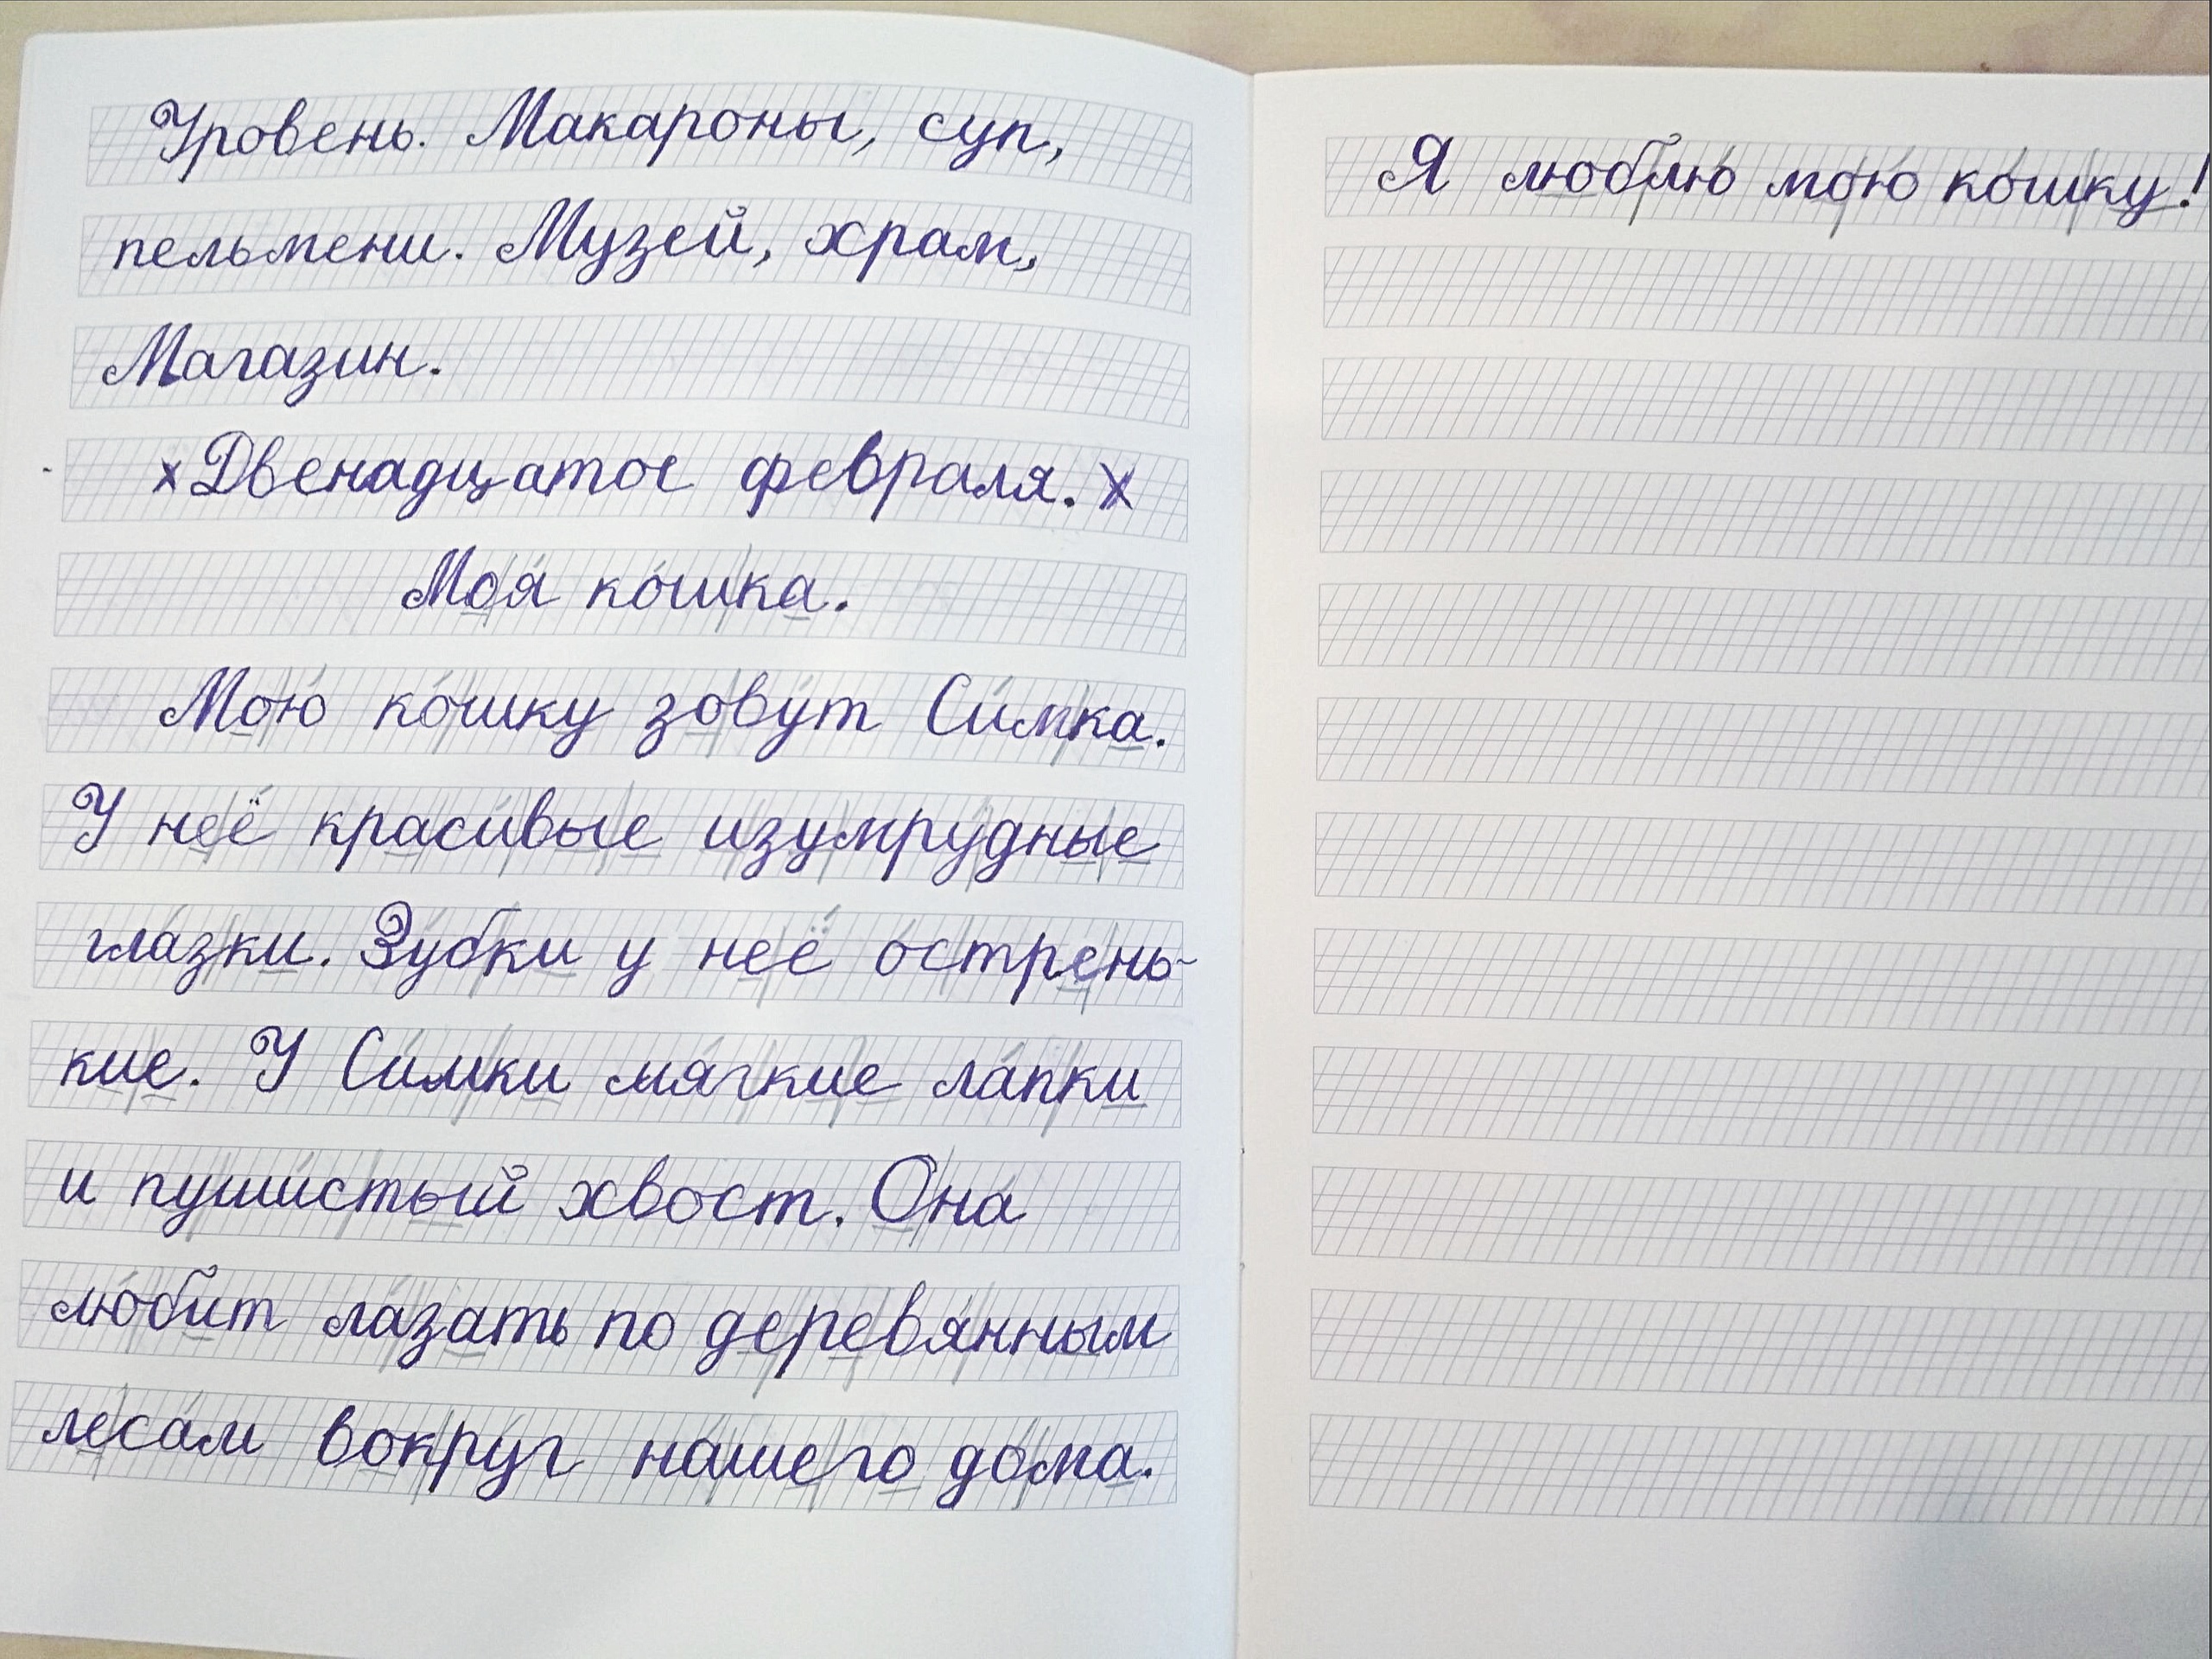 Уровень. Макароны, суп,
пельмени. Музей, храм,
Магазин.
х Двенадцатое февраля. х
Моя́ ко́шка.
Мою́ ко́шку зову́т Си́мка.
У неё краси́вые изумру́дные
гла́зки. Зу́бки у неё о́стрень-
кие. У Си́мки мя́гкие ла́пки
и пуши́стый хвост. Она́
лю́бит ла́зать по деревя́нным
леса́м вокру́г на́шего до́ма.
Я люблю́ мою́ ко́шку!